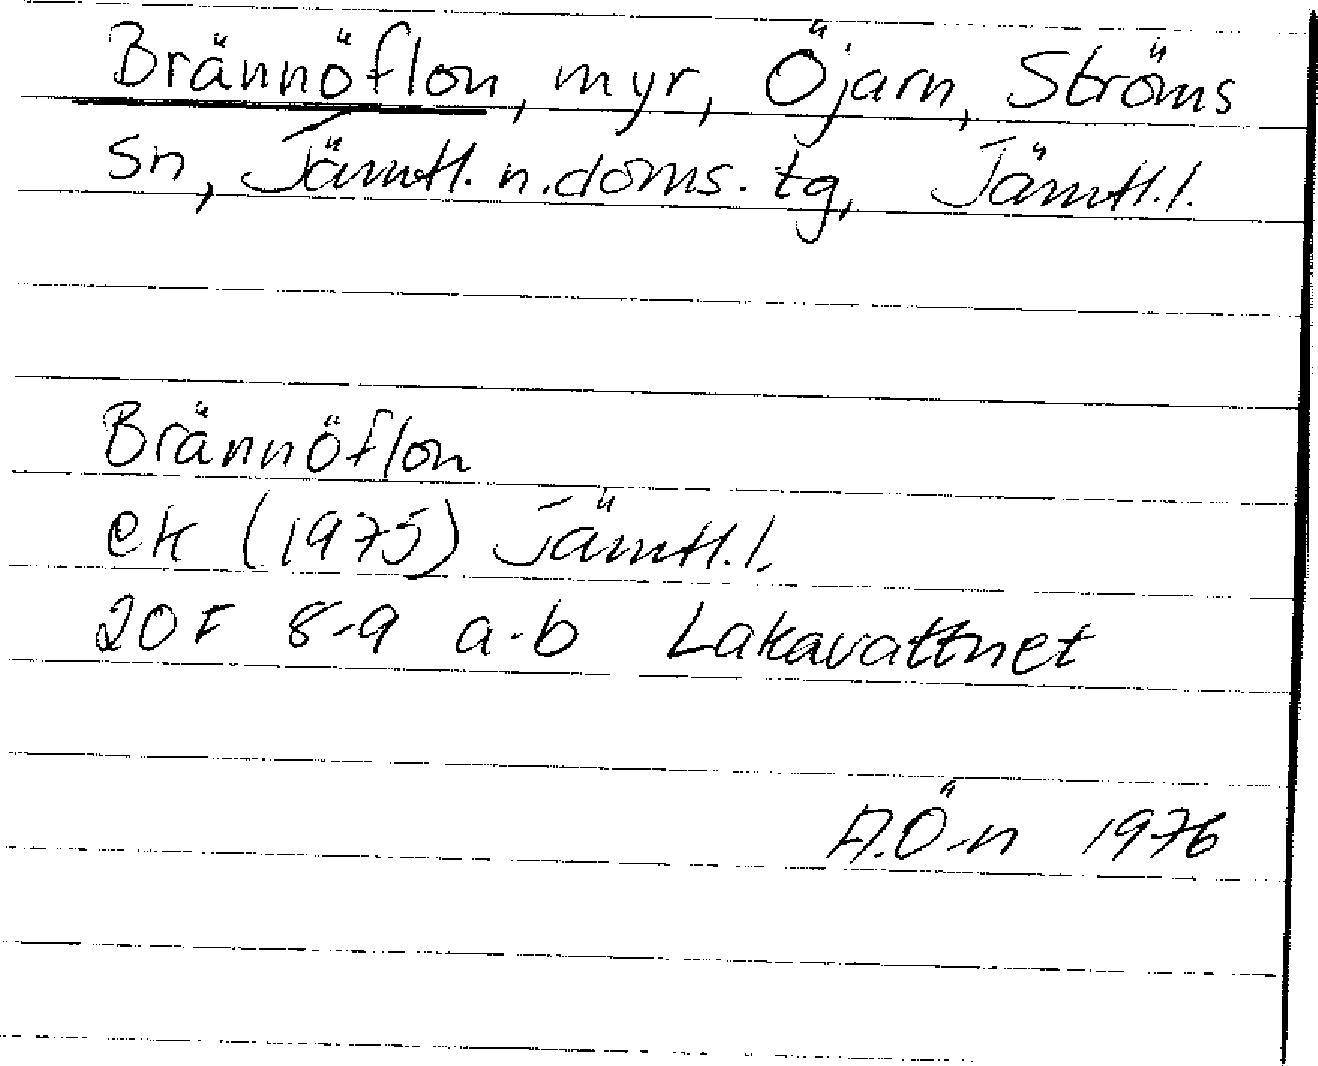 Brännöflon, myr, Öjarn, Ströms
Sn, Jämtl. n. doms. tg, Jämtl. l.
Brännöflon
ek (1975) Jämtl. l.
20 F 8-9 a-b Lakavattnet
A.Ö-n 1976